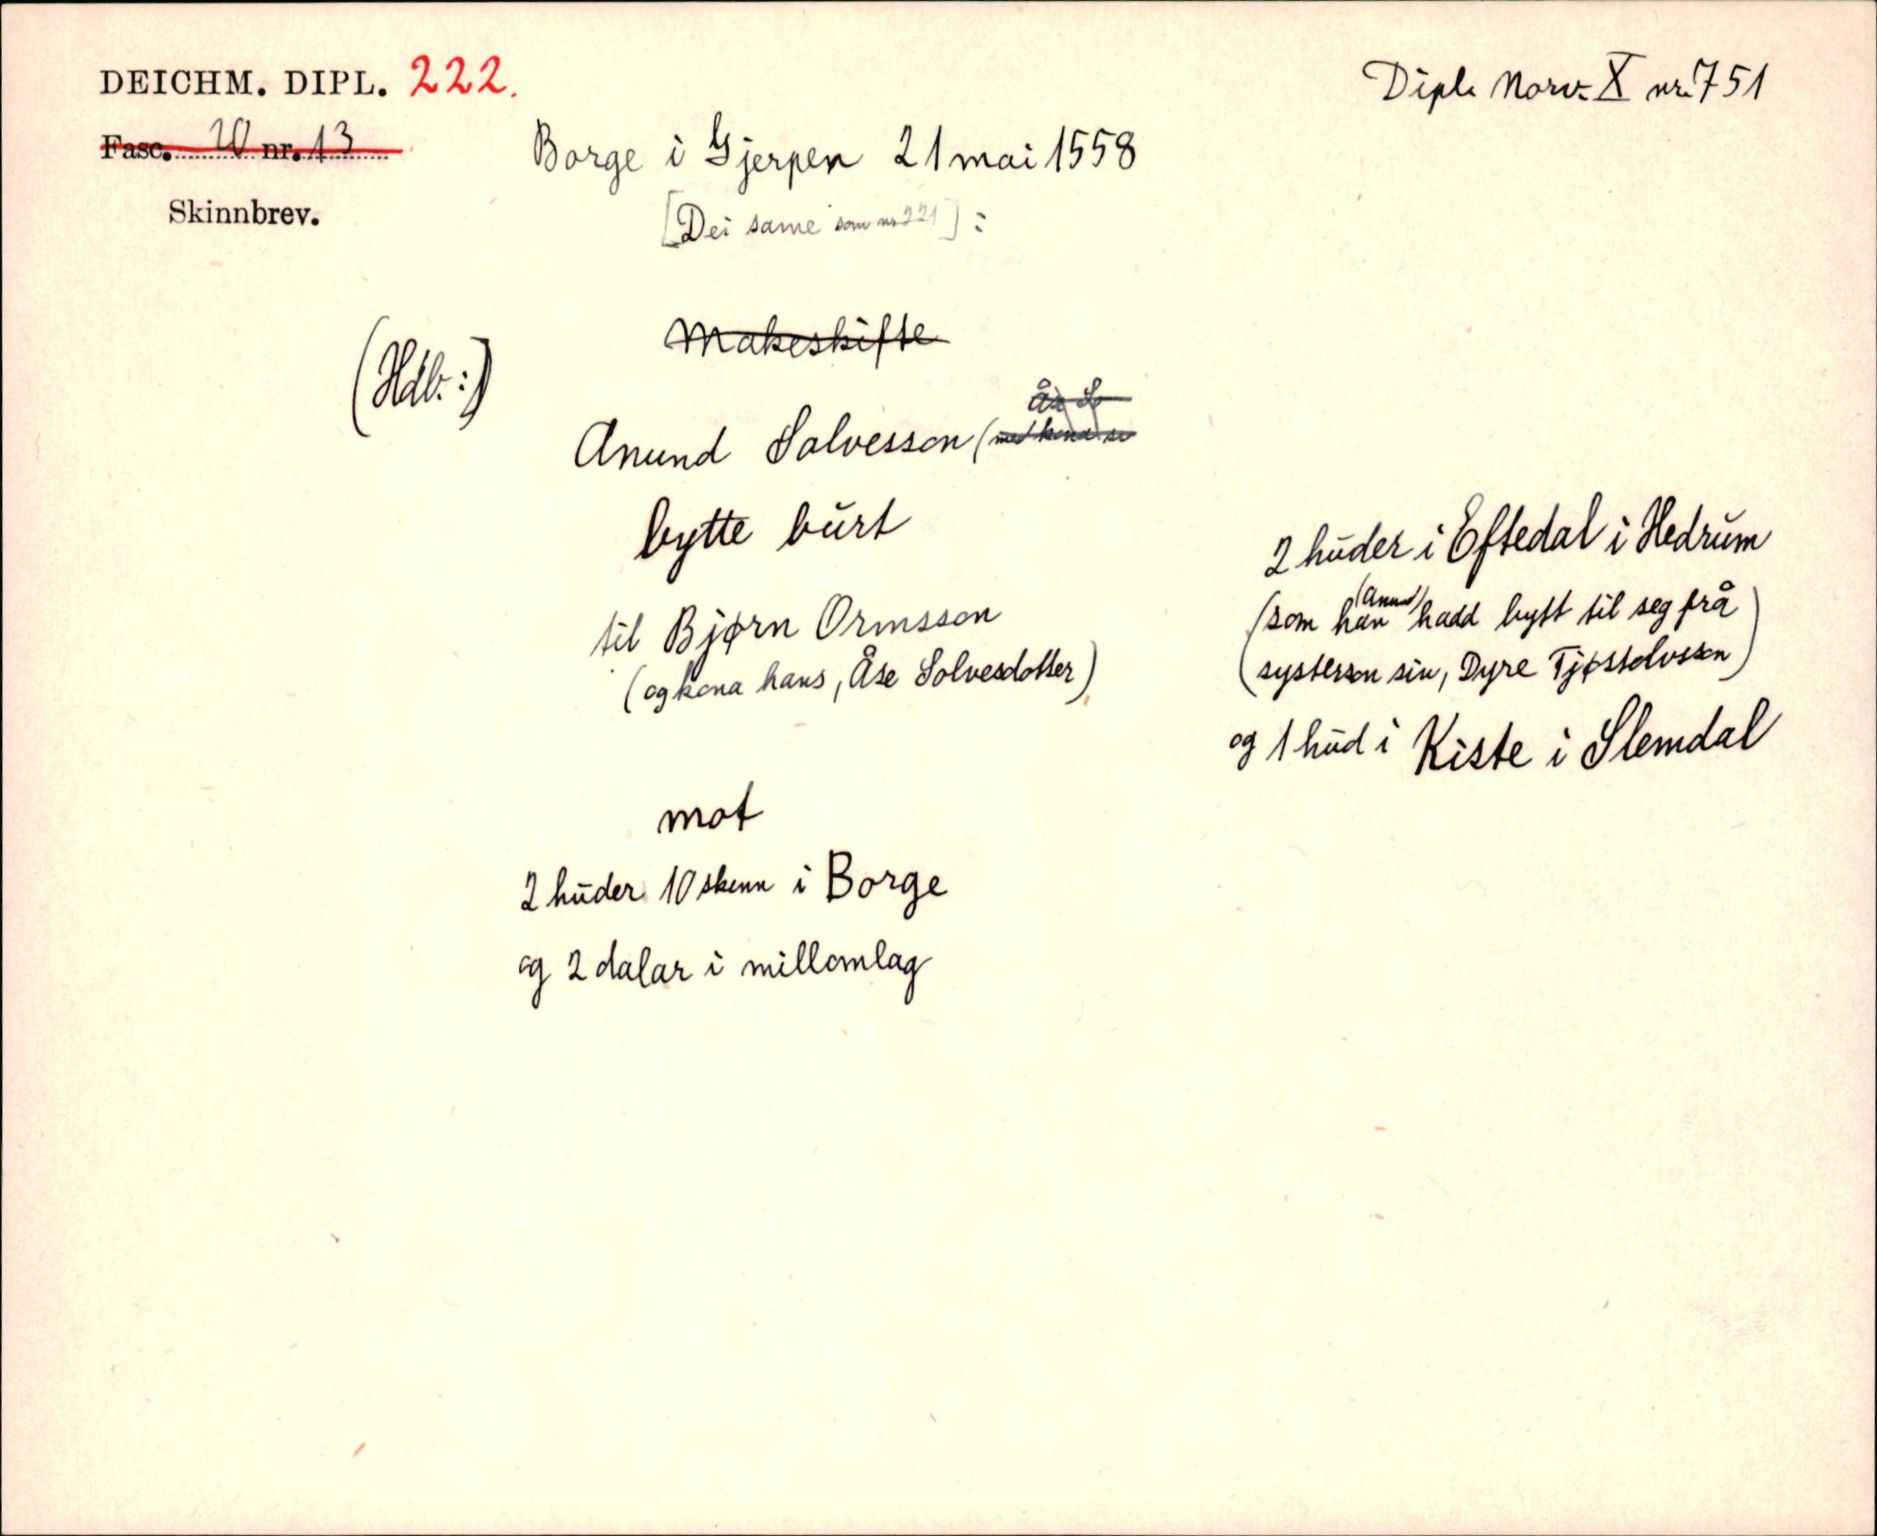 DEICHM. DIPL. 222.
Dipl. Norv. X nr. 751
Fasc. 20 nr. 13
Borge i Gjerpen 21 mai 1558
Skinnbrev.
[Dei same som nr 221]:
Makeskifte
(Hdb.:)
Anund Solvesson (med kona si
Åse So
bytte burt
2 huder i Eftedal i Hedrum
(som han (Anund) hadd bytt til seg frå
systerson sin, Dyre Tjøstolvsson)
og 1 hud i Kiste i Slemdal
til Bjørn Ormsson
(og kona hans, Åse Solvesdotter)
mot
2 huder 10 skinn i Borge
og 2 dalar i millomlag